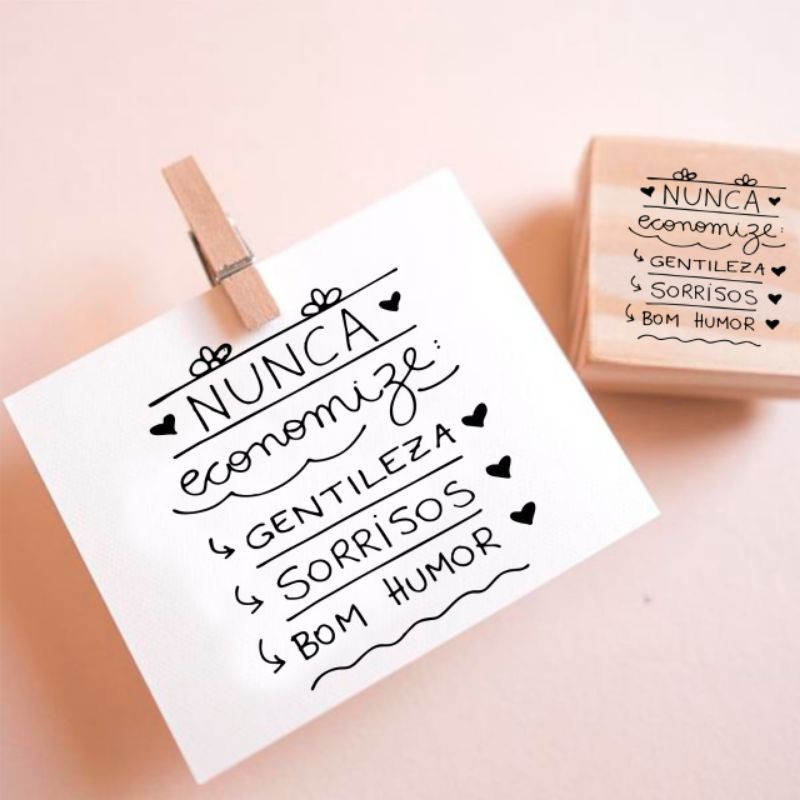 NUNCA
economize:
GENTILEZA
SORRISOS
BOM HUMOR
NUNCA
economize:
GENTILEZA
SORRISOS
BOM HUMOR